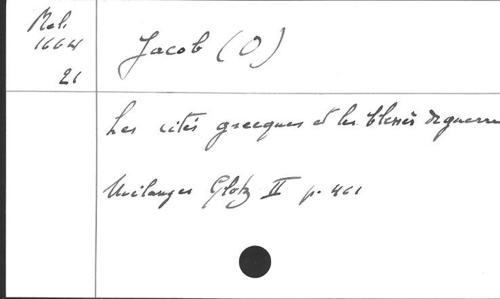 Mel.
1664
21
Jacob (O)
Les cités grecques et les blessés de guerre
Mélanges Glotz II p. 461